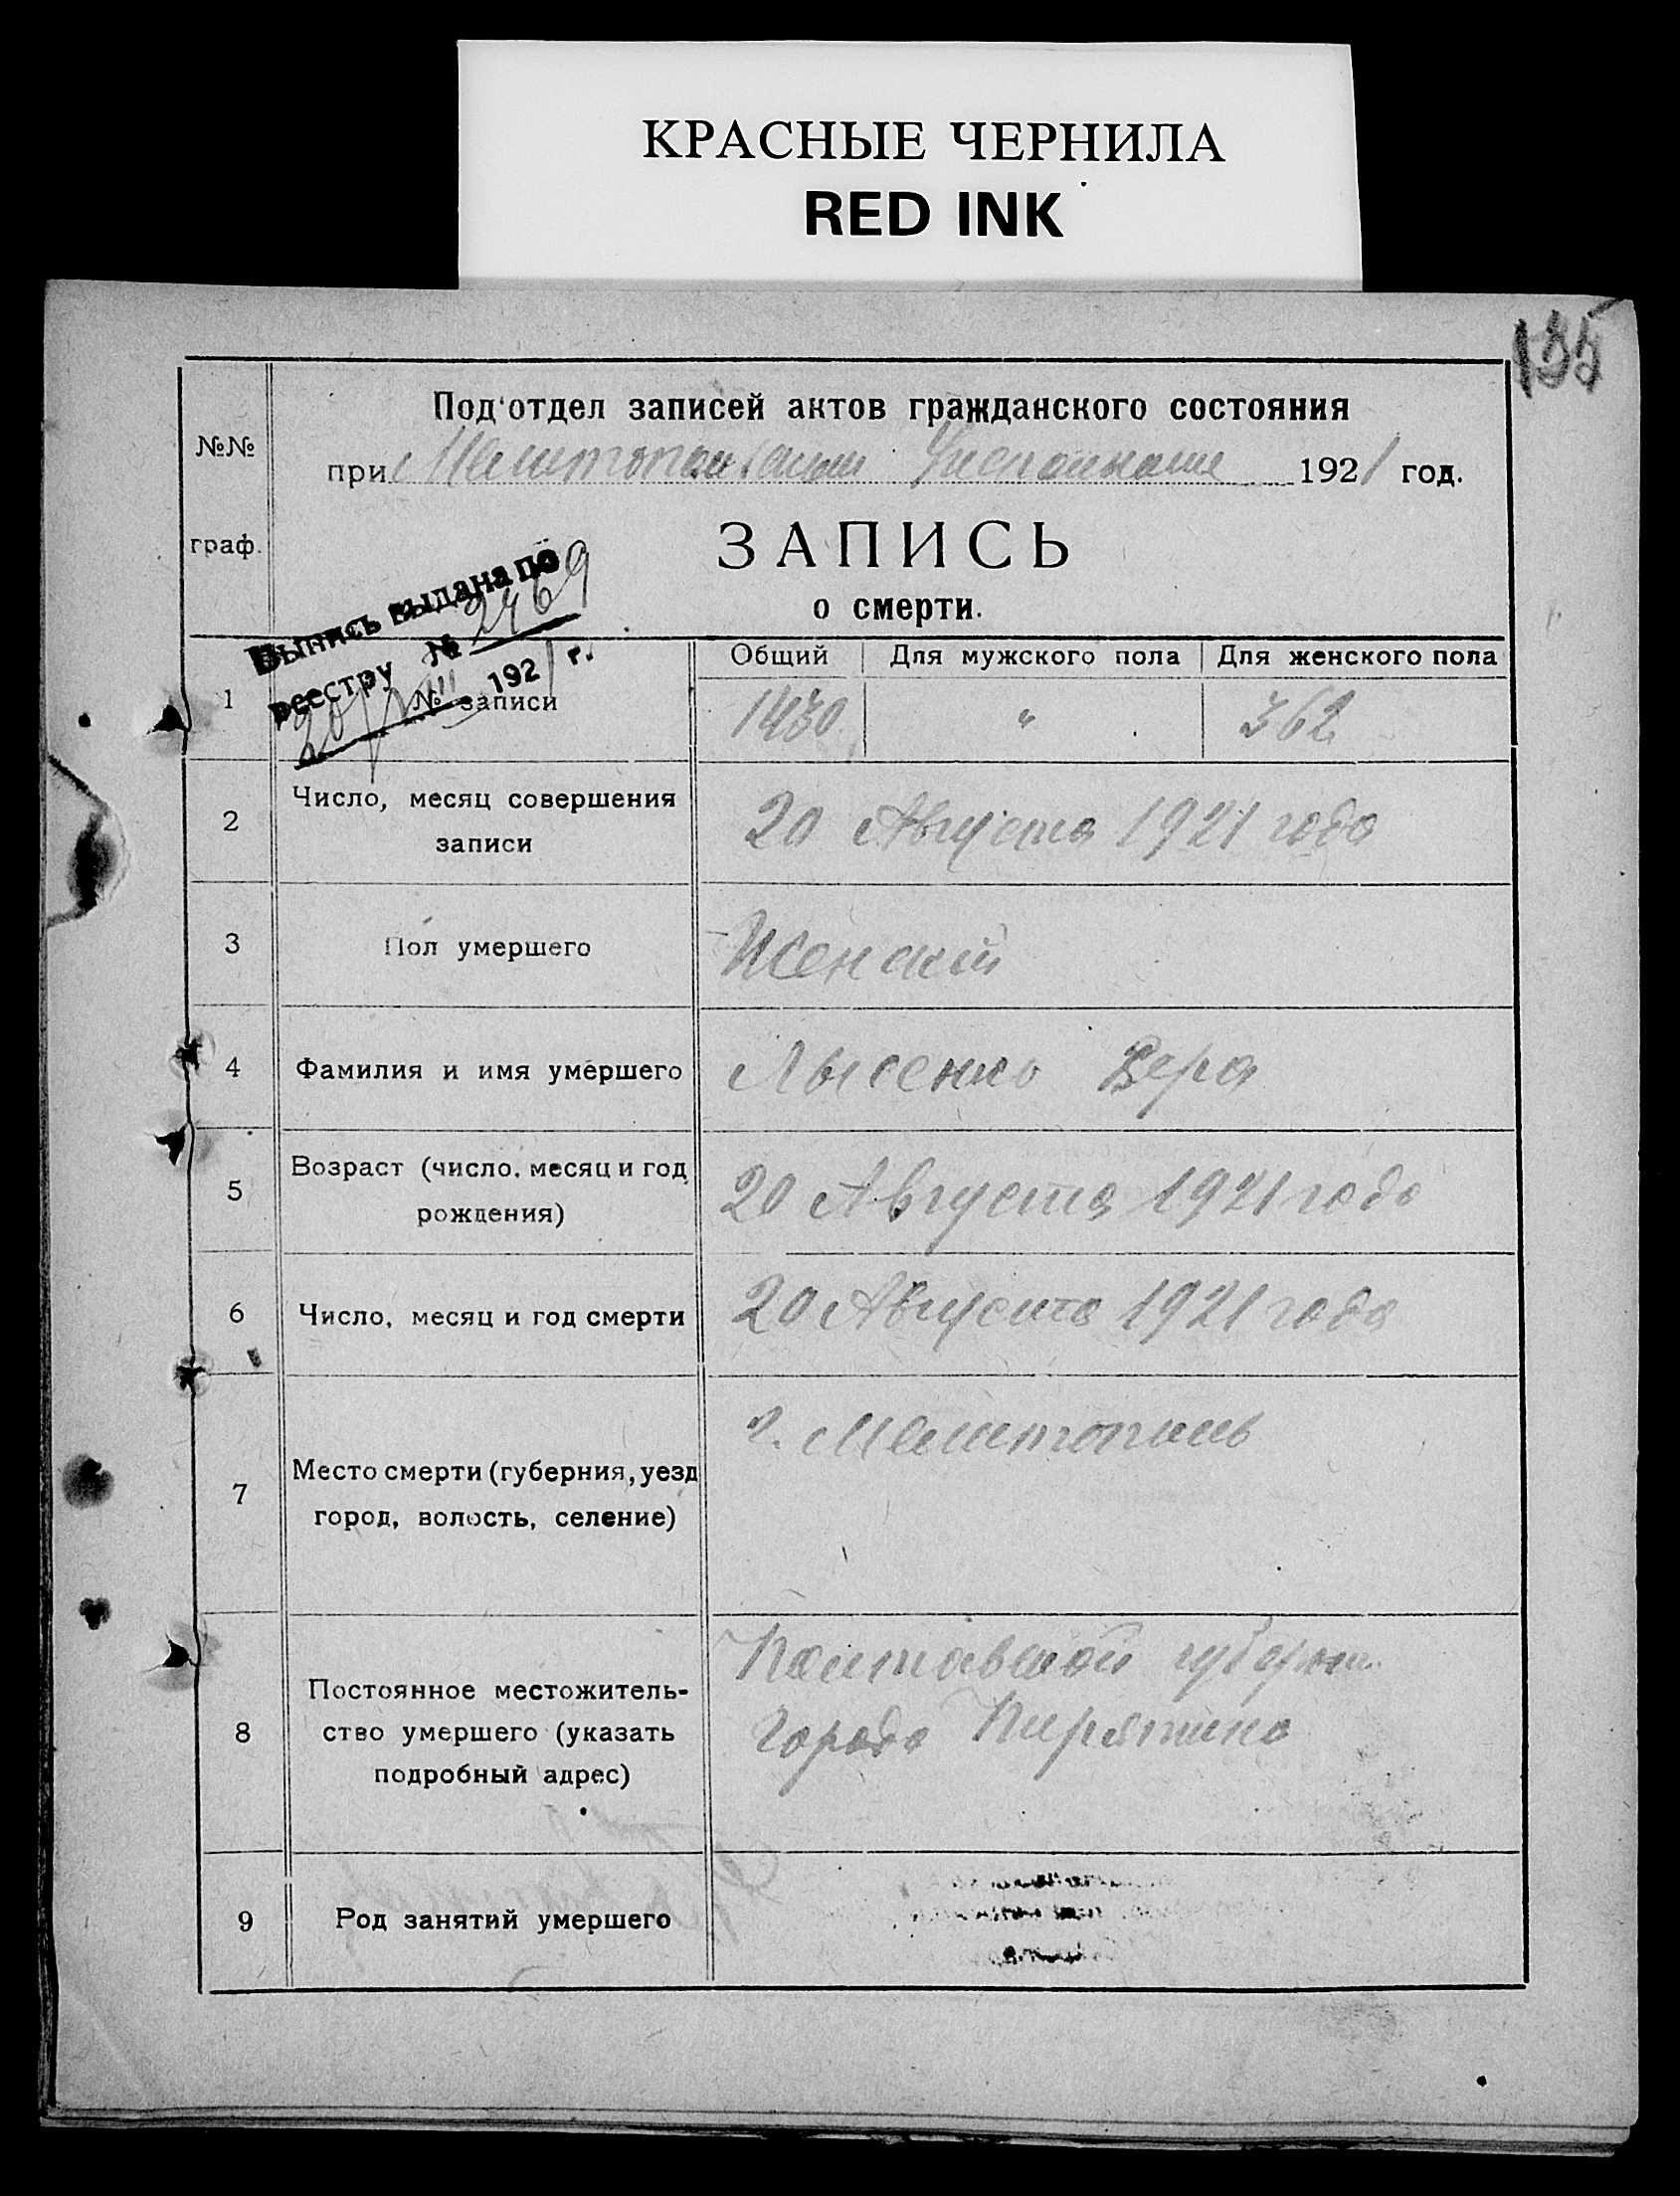 КРАСНЫЕ ЧЕРНИЛА
RED INK
135
№№
граф.
Под'отдел записей актов гражданского состояния
при Мелитопольском Уисполкоме 1921 год.
ЗАПИСЬ
о смерти.
Выпись выдана по
реестру № 2469
20/VIII 1921 г.
1 № записи
Общий Для мужского пола Для женского пола
1430 " 362
2 Число, месяц совершения
записи
20 Августа 1921 года
3 Пол умершего
Женский
4 Фамилия и имя умершего
Лысенко Вера
5 Возраст (число, месяц и год
рождения)
20 Августа 1921 года
6 Число, месяц и год смерти
20 Августа 1921 года
7 Место смерти (губерния, уезд
город, волость, селение)
г. Мелитополь
8 Постоянное местожитель-
ство умершего (указать
подробный адрес)
Полтавской губерни.
Города Пирятина
9 Род занятий умершего